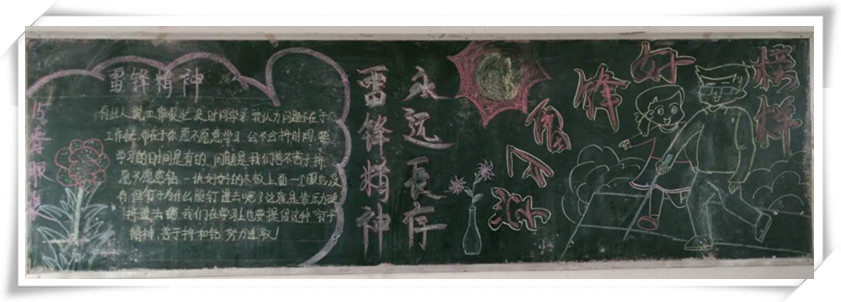 雷锋精神
有些人说工作忙、没时间学习。我认为问题不在于
工作忙,而在于你愿不愿意学习,会不会挤时间,要
学习的时间是有的,问题是我们善不善于挤,
愿不愿意钻。一块好好的木板,上面一个眼也没
有,但钉子为什么能钉进去呢?这就是靠压力硬
挤进去的,我们在学习上也要提倡这种“钉子”
精神,善于挤和钻,努力进取!
雷锋精神
永远長存
锋好
榜样